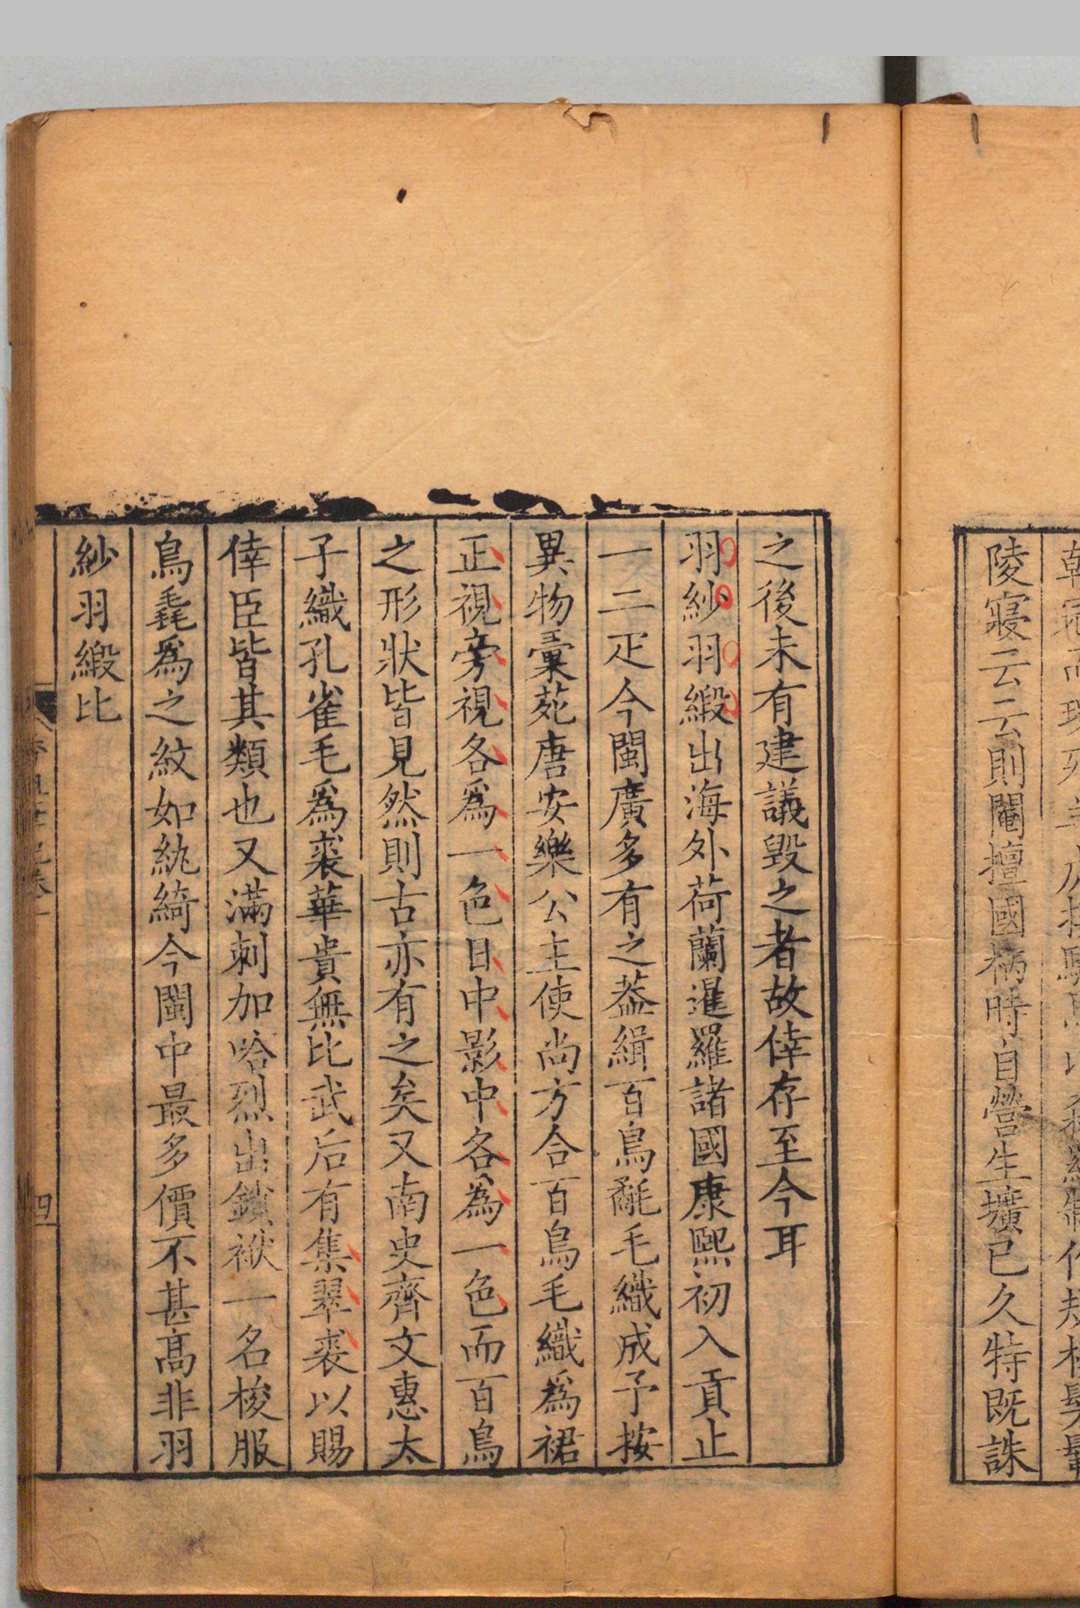 陵寢云云則閹擅國柄時自營生壙已久特既誅
之後未有建議毀之者故倖存至今耳
羽紗羽緞出海外荷蘭暹羅諸國康熙初入貢止
一二疋今閩廣多有之葢緝百鳥氄毛織成予按
異物彙苑唐安樂公主使尚方合百鳥毛織爲裙
正視旁視各爲一色日中影中各爲一色而百鳥
之形狀皆見然則古亦有之矣又南史齊文惠太
子織孔雀毛爲裘華貴無比武后有集翠裘以賜
倖臣皆其類也又滿刺加哈烈出鎖袱一名梭服
鳥毳爲之紋如紈綺今閩中最多價不甚高非羽
紗羽緞比
四